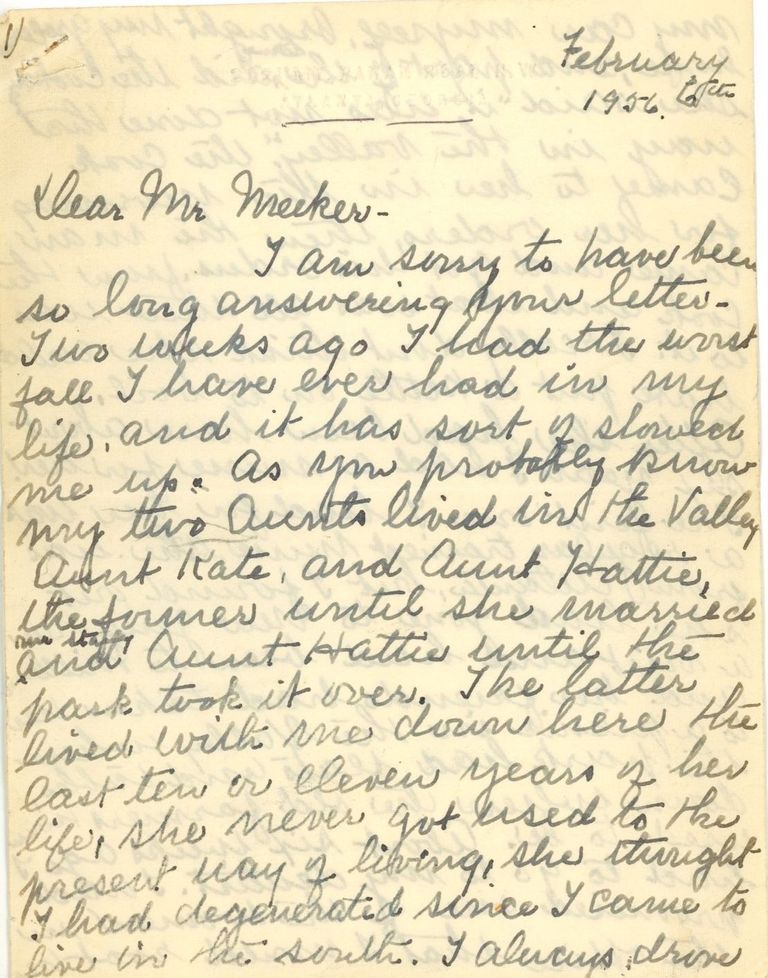 1)
February
1956. 6th
Dear Mr Meeker-
I am sorry to have been
so long answering your letter-
Two weeks ago I had the worst
fall I have ever had in my
life, and it has sort of slowed
me up. As you probably know
my two Aunts lived in the Valley
Aunt Kate, and Aunt Hattie,
the former until she married
mr
and Aunt Hattie until the
park took it over. The latter
lived with me down here the
last ten or eleven years of her
life, she never got used to the
present way of living, she thought
I had degenerated since I came to
live in the south. I always drove